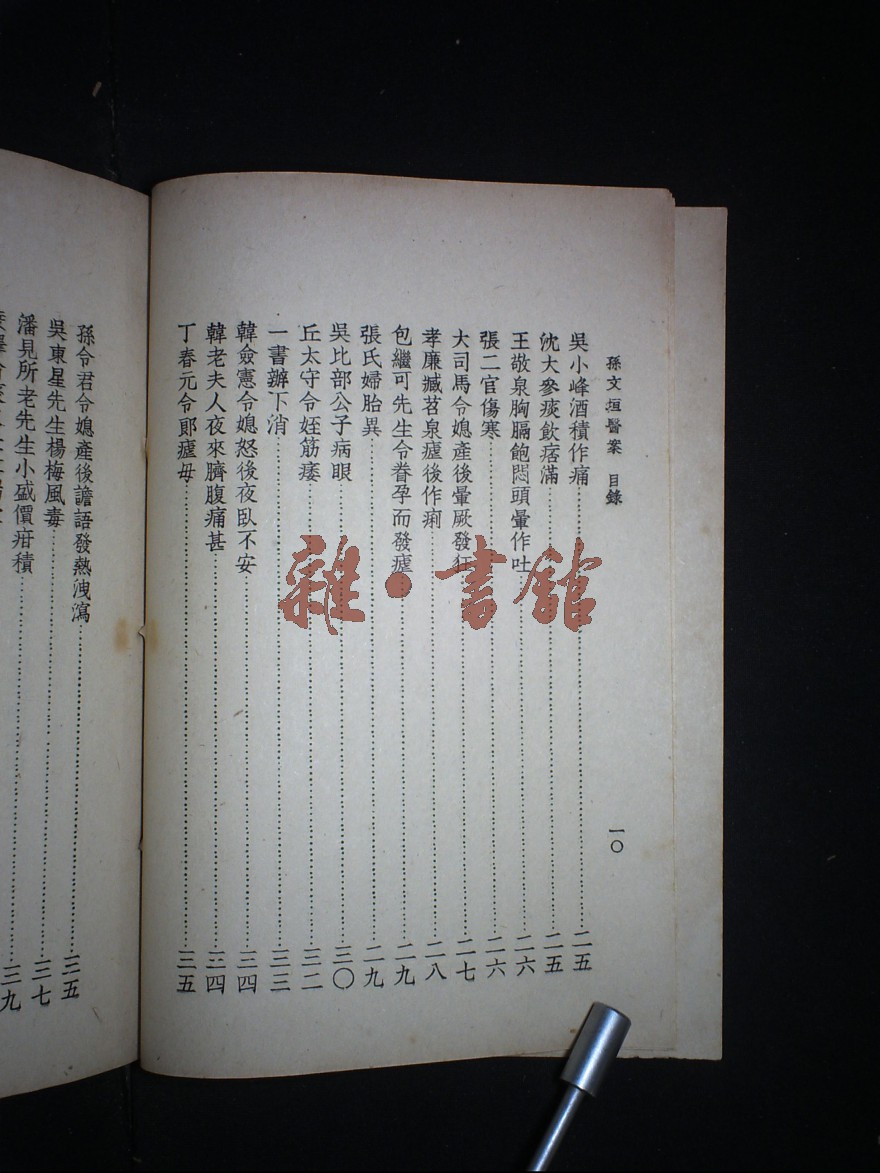 孫文垣醫案 目錄
一〇
吳小峰酒積作痛 二五
沈大參痰飲痞滿 二五
王敬泉胸膈飽悶頭暈作吐 二六
張二官傷寒 二六
大司馬令媳產後暈厥發狂 二七
孝廉臧茗泉瘧後作痢 二八
包繼可先生令眷孕而發瘧 二九
張氏婦胎異 二九
吳比部公子病眼 三〇
丘太守令姪筋痿 三二
一書辦下消 三三
韓僉憲令媳怒後夜臥不安 三四
韓老夫人夜來臍腹痛甚 三四
丁春元令郎瘧毋 三五
孫令君令媳產後譫語發熱洩瀉 三五
吳東星先生楊梅風毒 三七
潘見所老先生小盛價疳積 三九
雜·書館